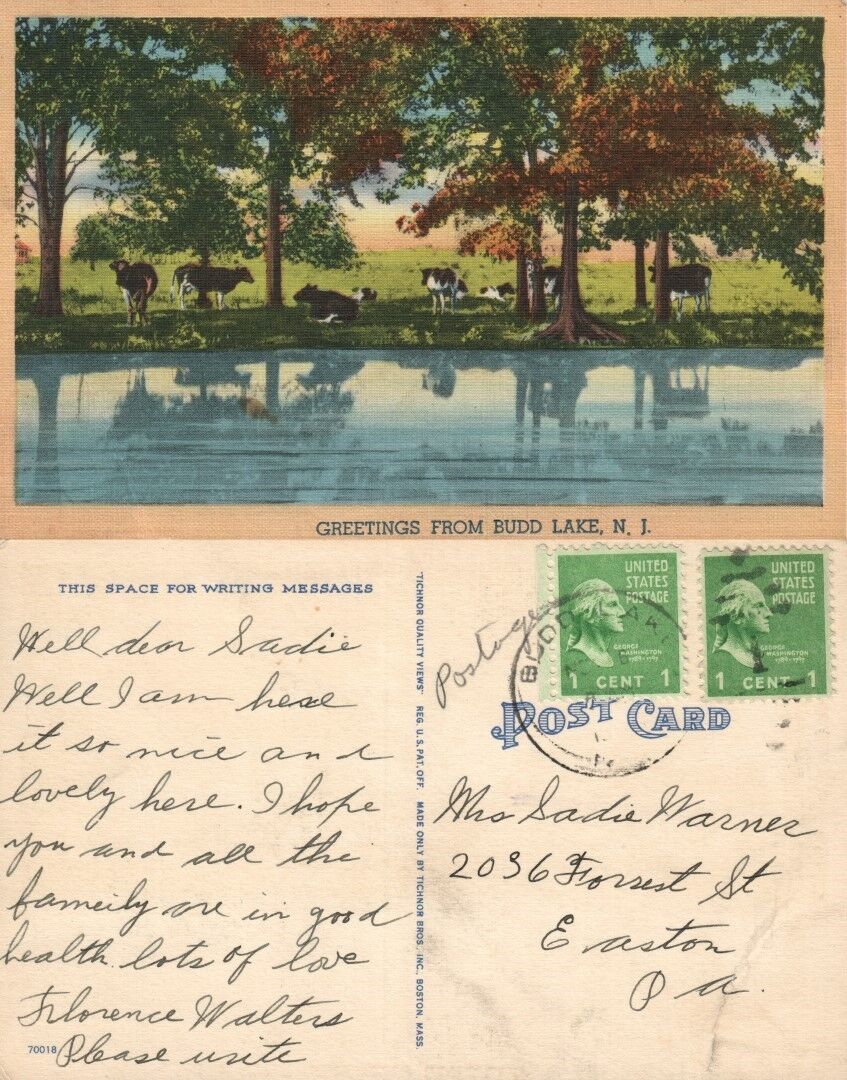 GREETINGS FROM BUDD LAKE, N. J.
THIS SPACE FOR WRITING MESSAGES
Well dear Sadie
Well I am here
it so nice and
lovely here. I hope
you and all the
fameily are in good
health. lots of love
Filorence Walters
Please write
70018
"TICHNOR QUALITY VIEWS" REG. U. S. PAT. OFF. MADE ONLY BY TICHNOR BROS., INC., BOSTON, MASS.
Postage
BUDD
UNITED
STATES
POSTAGE
GEORGE
WASHINGTON
1789-1797
1 CENT 1
UNITED
STATES
POSTAGE
GEORGE
WASHINGTON
1789-1797
1 CENT 1
POST CARD
Mrs Sadie Warner
2036 Forrest St
Easton
Pa.